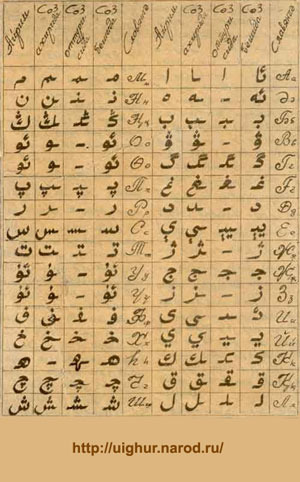 Айрим Соз ахирида Соз оттурисида Соз бешида Славянчә Айрим Соз ахирида Соз оттурисида Соз бешида Славянчә
م ـم ـمـ مـ Мм ا ـا ـا ئا Аа
ن ـن ـنـ نـ Нн ە ـە - ئە Әә
ڭ ـڭ ـڭـ ڭـ Ңң ب ـب ـبـ بـ Бб
ئو ـو - ئو Оо ۋ ـۋ - ۋ Вв
ئۆ ـۆ - ئۆ Өө گ ـگ ـگـ گـ Гг
پ ـپ ـپـ پـ Пп غ ـغ ـغـ غـ Ғғ
ر ـر - ر Рр د ـد - د Дд
س ـس ـسـ سـ Сс ې ـې ـېـ ئې Ее
ت ـت ـتـ تـ Тт ژ ـژ - ژ Жж
ئۇ ـۇ - ئۇ Уу ج ـج ـجـ جـ Җҗ
ئۈ ـۈ - ئۈ Үү ز ـز - ز Зз
ف ـف ـفـ فـ Фф ى ـى ـىـ ئى Ии
خ ـخ ـخـ خـ Хх ي ـي ـيـ يـ Йй
ھ ـھ ـھـ ھـ Һһ ك ـك ـكـ كـ Кк
چ ـچ ـچـ چـ Чч ق ـق ـقـ قـ Ққ
ش ـش ـشـ شـ Шш ل ـل ـلـ لـ Лл
http://uighur.narod.ru/